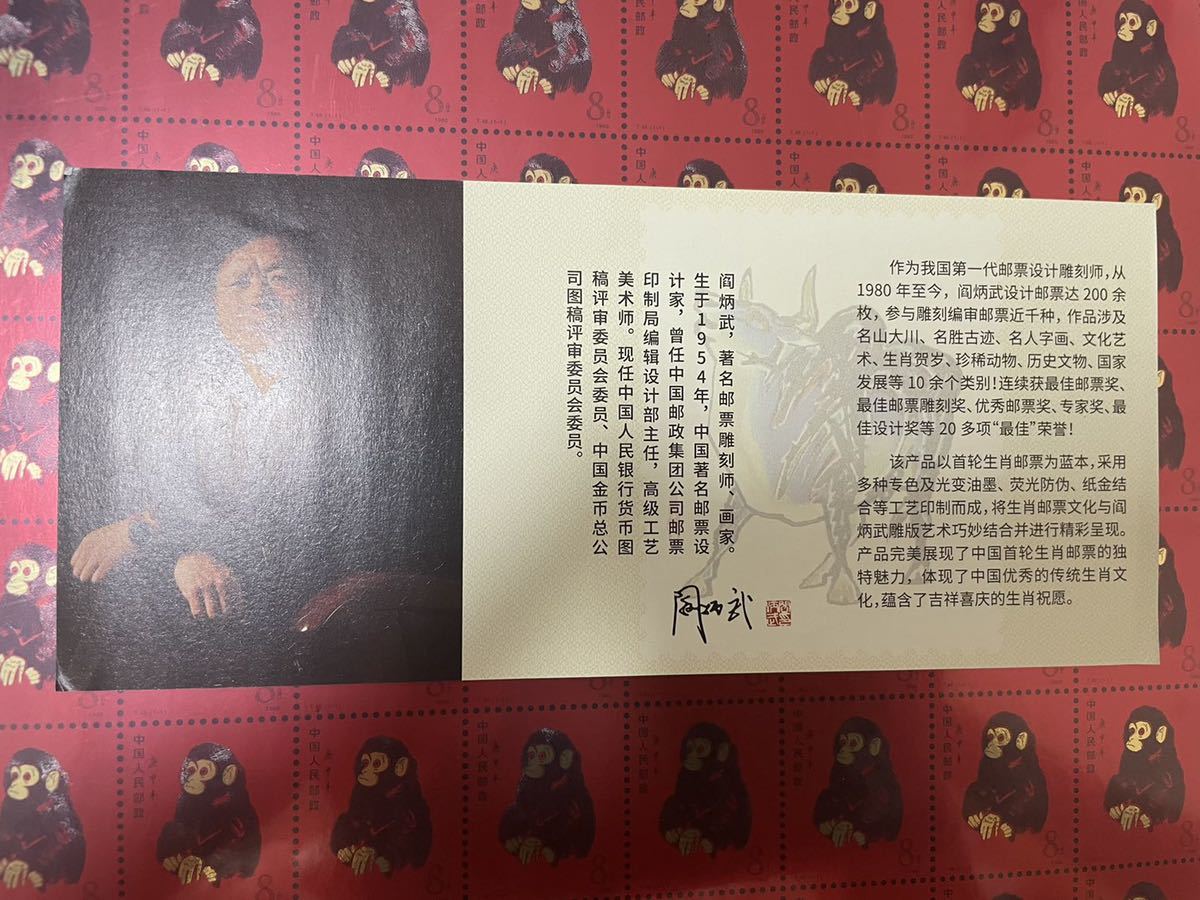 阎炳武，著名邮票雕刻师、画家。
生于1954年，中国著名邮票设
计家，曾任中国邮政集团公司邮票
印制局编辑设计部主任，高级工艺
美术师。现任中国人民银行货币图
稿评审委员会委员、中国金币总公
司图稿评审委员会委员。
阎炳武
作为我国第一代邮票设计雕刻师，从
1980年至今，阎炳武设计邮票达200余
枚，参与雕刻编审邮票近千种，作品涉及
名山大川、名胜古迹、名人字画、文化艺
术、生肖贺岁、珍稀动物、历史文物、国家
发展等10余个类别！连续获最佳邮票奖、
最佳邮票雕刻奖、优秀邮票奖、专家奖、最
佳设计奖等20多项“最佳”荣誉！
该产品以首轮生肖邮票为蓝本，采用
多种专色及光变油墨、荧光防伪、纸金结
合等工艺印制而成，将生肖邮票文化与阎
炳武雕版艺术巧妙结合并进行精彩呈现。
产品完美展现了中国首轮生肖邮票的独
特魅力，体现了中国优秀的传统生肖文
化，蕴含了吉祥喜庆的生肖祝愿。
中国人民邮政
庚申年
8分
T.46.(1-1)
1980